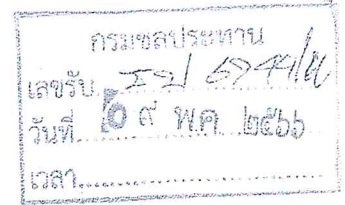 กรมชลประทาน
เลขรับ
วันที่ ๐๙ พ.ค. ๒๕๖๖
เวลา